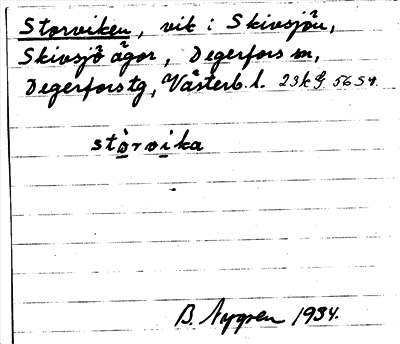 Storviken, vik i Skivsjön,
Skivsjö ägor, Degerfors sn,
Degerfors tg, Västerb. l. 23k G 56 S4.
stòrvika
B. Nygren 1934.